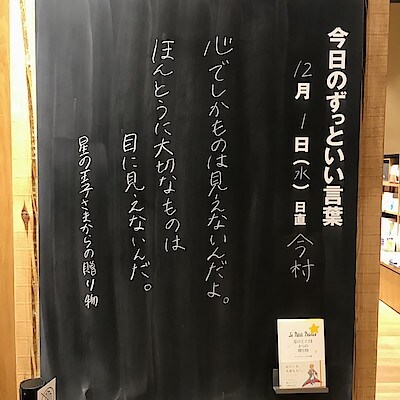 今日のずっといい言葉
12月1日(水) 日直 今村
心でしかものは見えないんだよ。
ほんとうに大切なものは
目に見えないんだ。
星の王子さまからの贈り物
Le Petit Prince